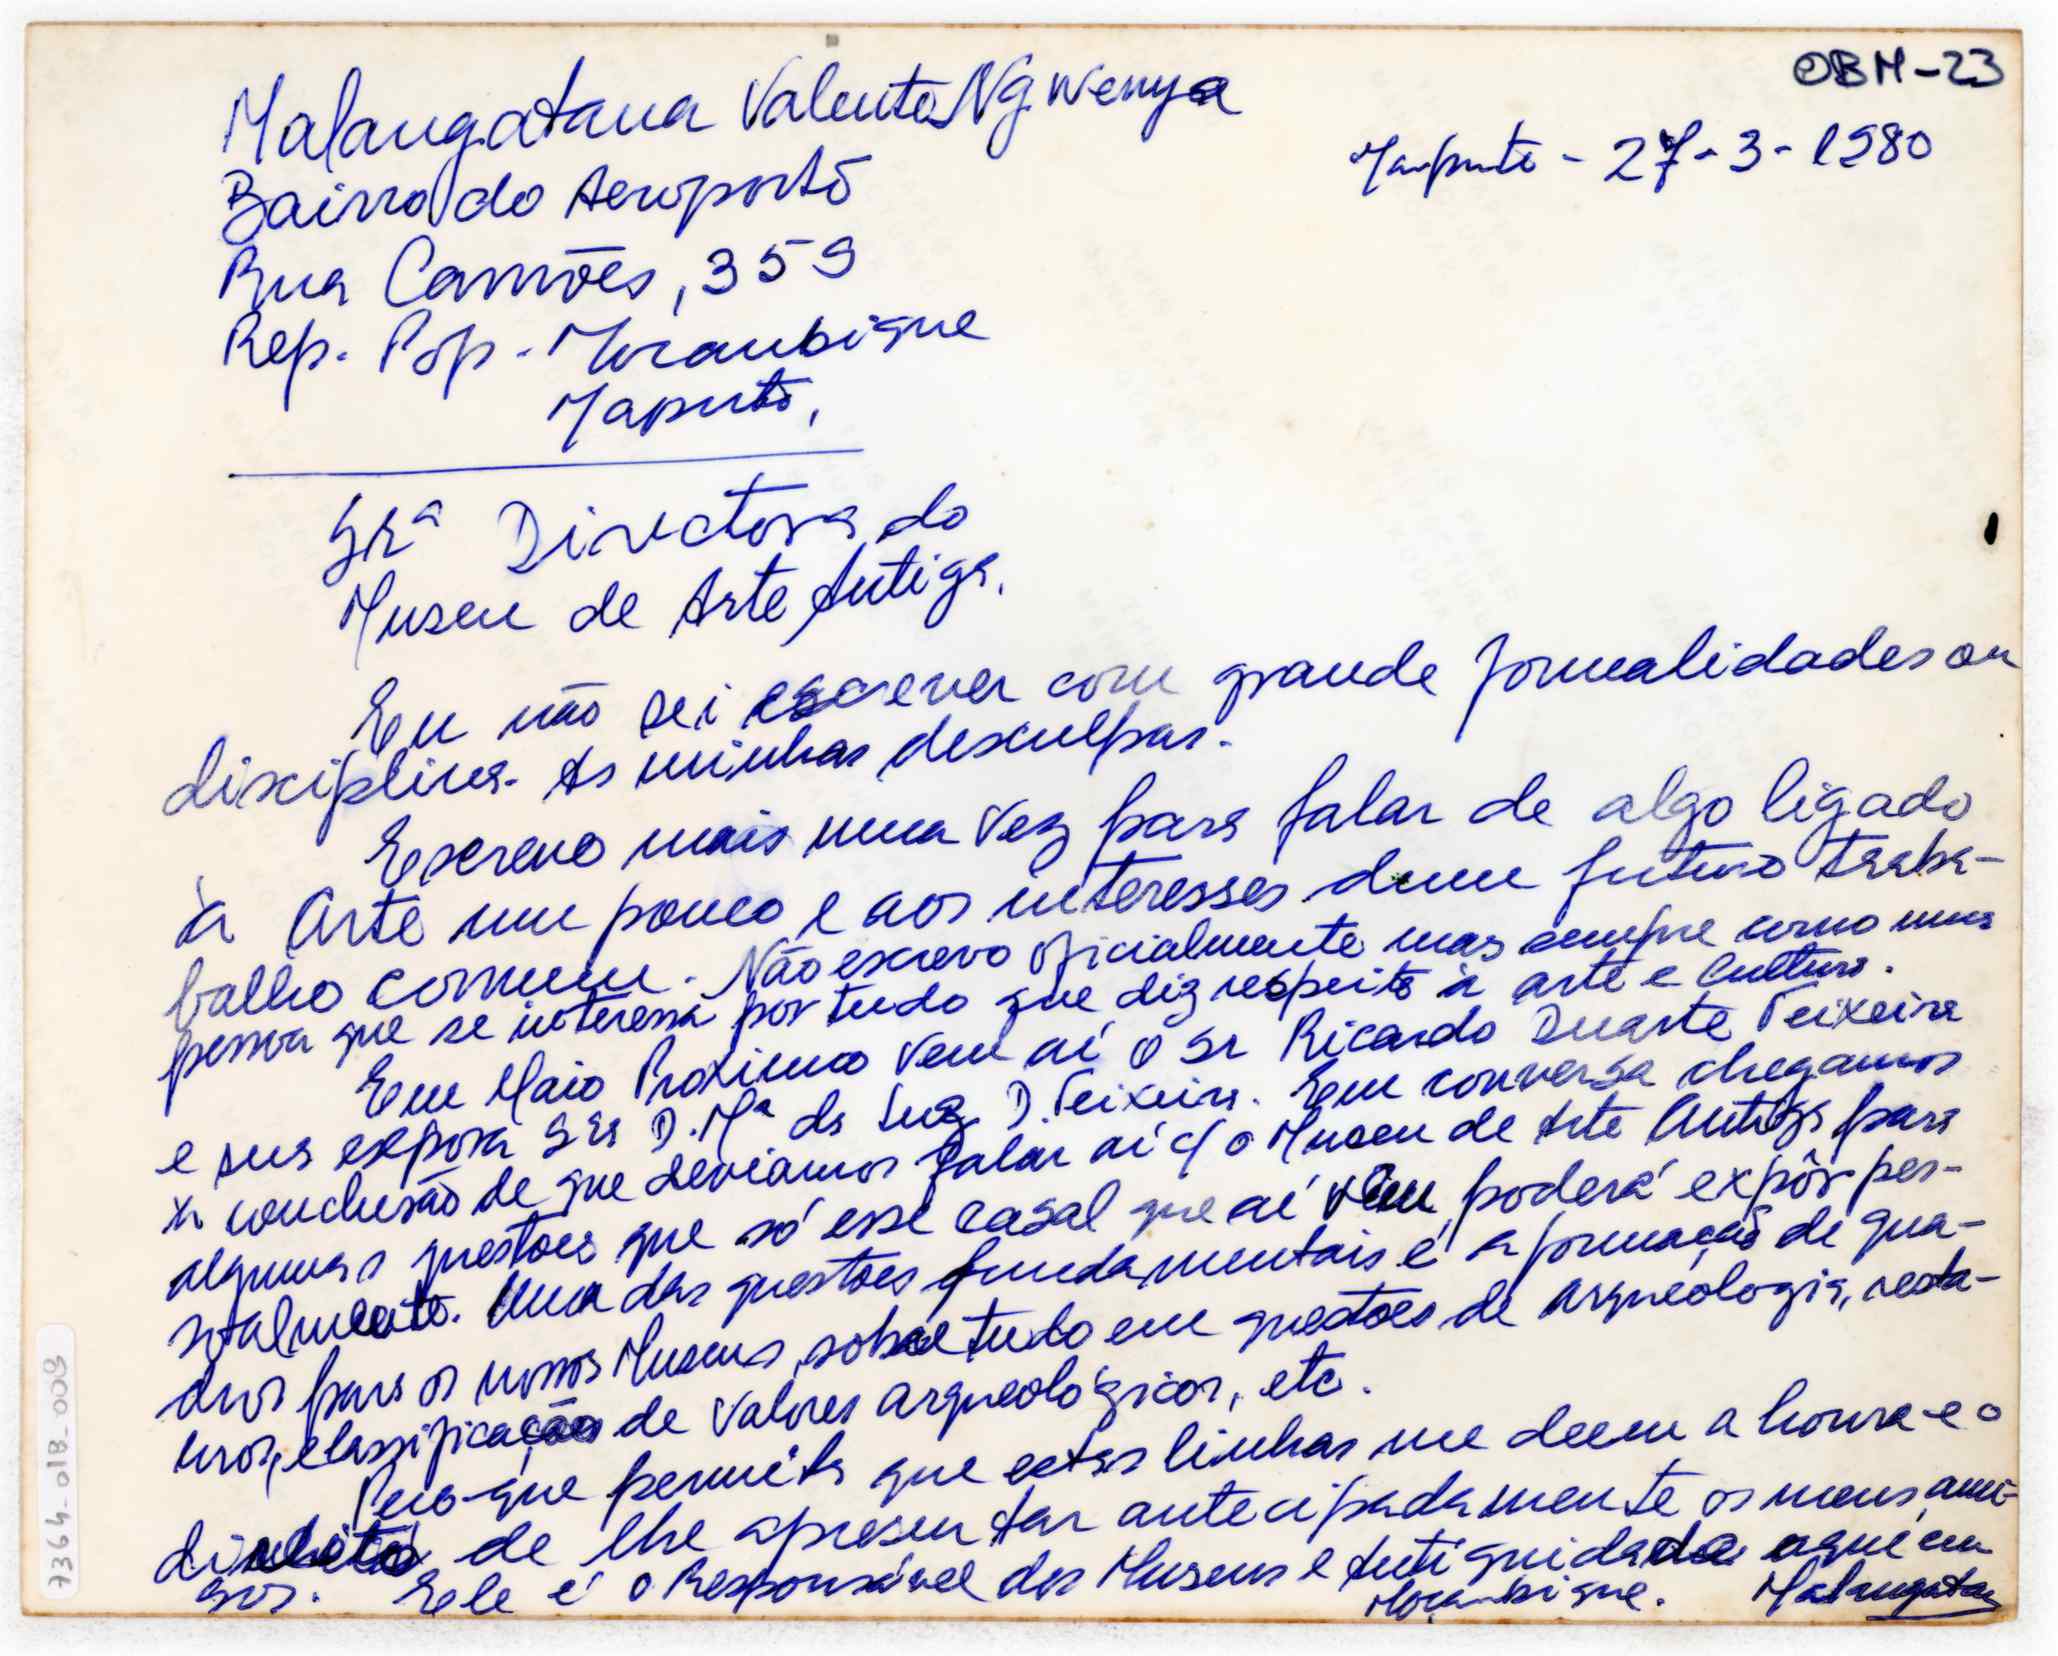 OBM-23
Malangatana Valente Ngwenya
Maputo - 27-3-1980
Bairro do Aeroporto
Rua Camões, 359
Rep. Pop. Mocambique
Maputo,
Srª Directora do
Museu de Arte Antiga.
Eu não sei escrever com grande formalidades ou
disciplina. As minhas desculpas.
Escrevo mais uma vez para falar de algo ligado
à Arte um pouco e aos interesses dum futuro traba-
balho comum. Não escrevo oficialmente mas sempre como uma
pessoa que se interessa por tudo que diz respeito à arte e Cultura.
Em Maio Proximo vem aí o Sr Ricardo Duarte Teixeira
e sua esposa Srª D. Mª da Luz D. Teixeira. Em conversa chegamos
à conclusão de que deviamos falar aí c/ o Museu de Arte Antiga para
algumas questões que só esse casal que aí vem, poderá expôr pes-
soalmente. Uma das questões fundamentais é a formação de qua-
dros para os nossos Museus, sobretudo em questões de arqueologia, resta-
uros, classificação de valores arqueológicos, etc.
Peço-que permita que estas linhas me deem a honra-e o
direito de lhe apresentar antecipadamente os meus ami-
gos. Ele é o Responsável dos Museus e Antiguidade aqui em
Moçambique. Malangatana
7364-018-0008